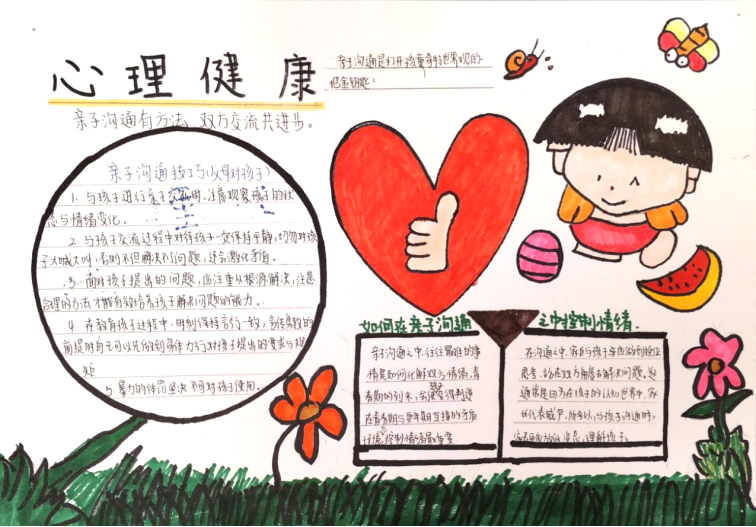 心理健康
亲子沟通是打开孩童 世界观的
把金钥匙!
亲子沟通有方法 双方交流共进步。
亲子沟通技巧(父母对孩子)
1. 与孩子进行亲子交流时,注意观察孩子的状
态与情绪变化。
2. 与孩子交流过程中对待孩子一定保持平静,切勿对孩
子大喊大叫,否则不但解决不了问题,还会激化矛盾。
3. 面对孩子提出的问题,应注重从根源解决,注意
合理的方法才能有效培养孩子解决问题的能力。
4. 在教育孩子过程中,时刻保持言行一致,言传身教的
前提时自己可以先做到身体力行对孩子提出的要求与规
矩
5. 暴力的体罚坚决不可对孩子使用。
如何在亲子沟通
之中控制情绪.
亲子沟通之中,往往最难的事
情是如何化解双方情绪,青
春期的到来,
在青春期与更年期互撞的矛盾
环境,控制情绪最重要
在沟通之中,家长与孩子
思考,站在双方角度去解决问题,
通常是因为在孩子的认知世界中,家
长代表威严,所以,与孩子沟通时,
家长 放低姿态,理解孩子。